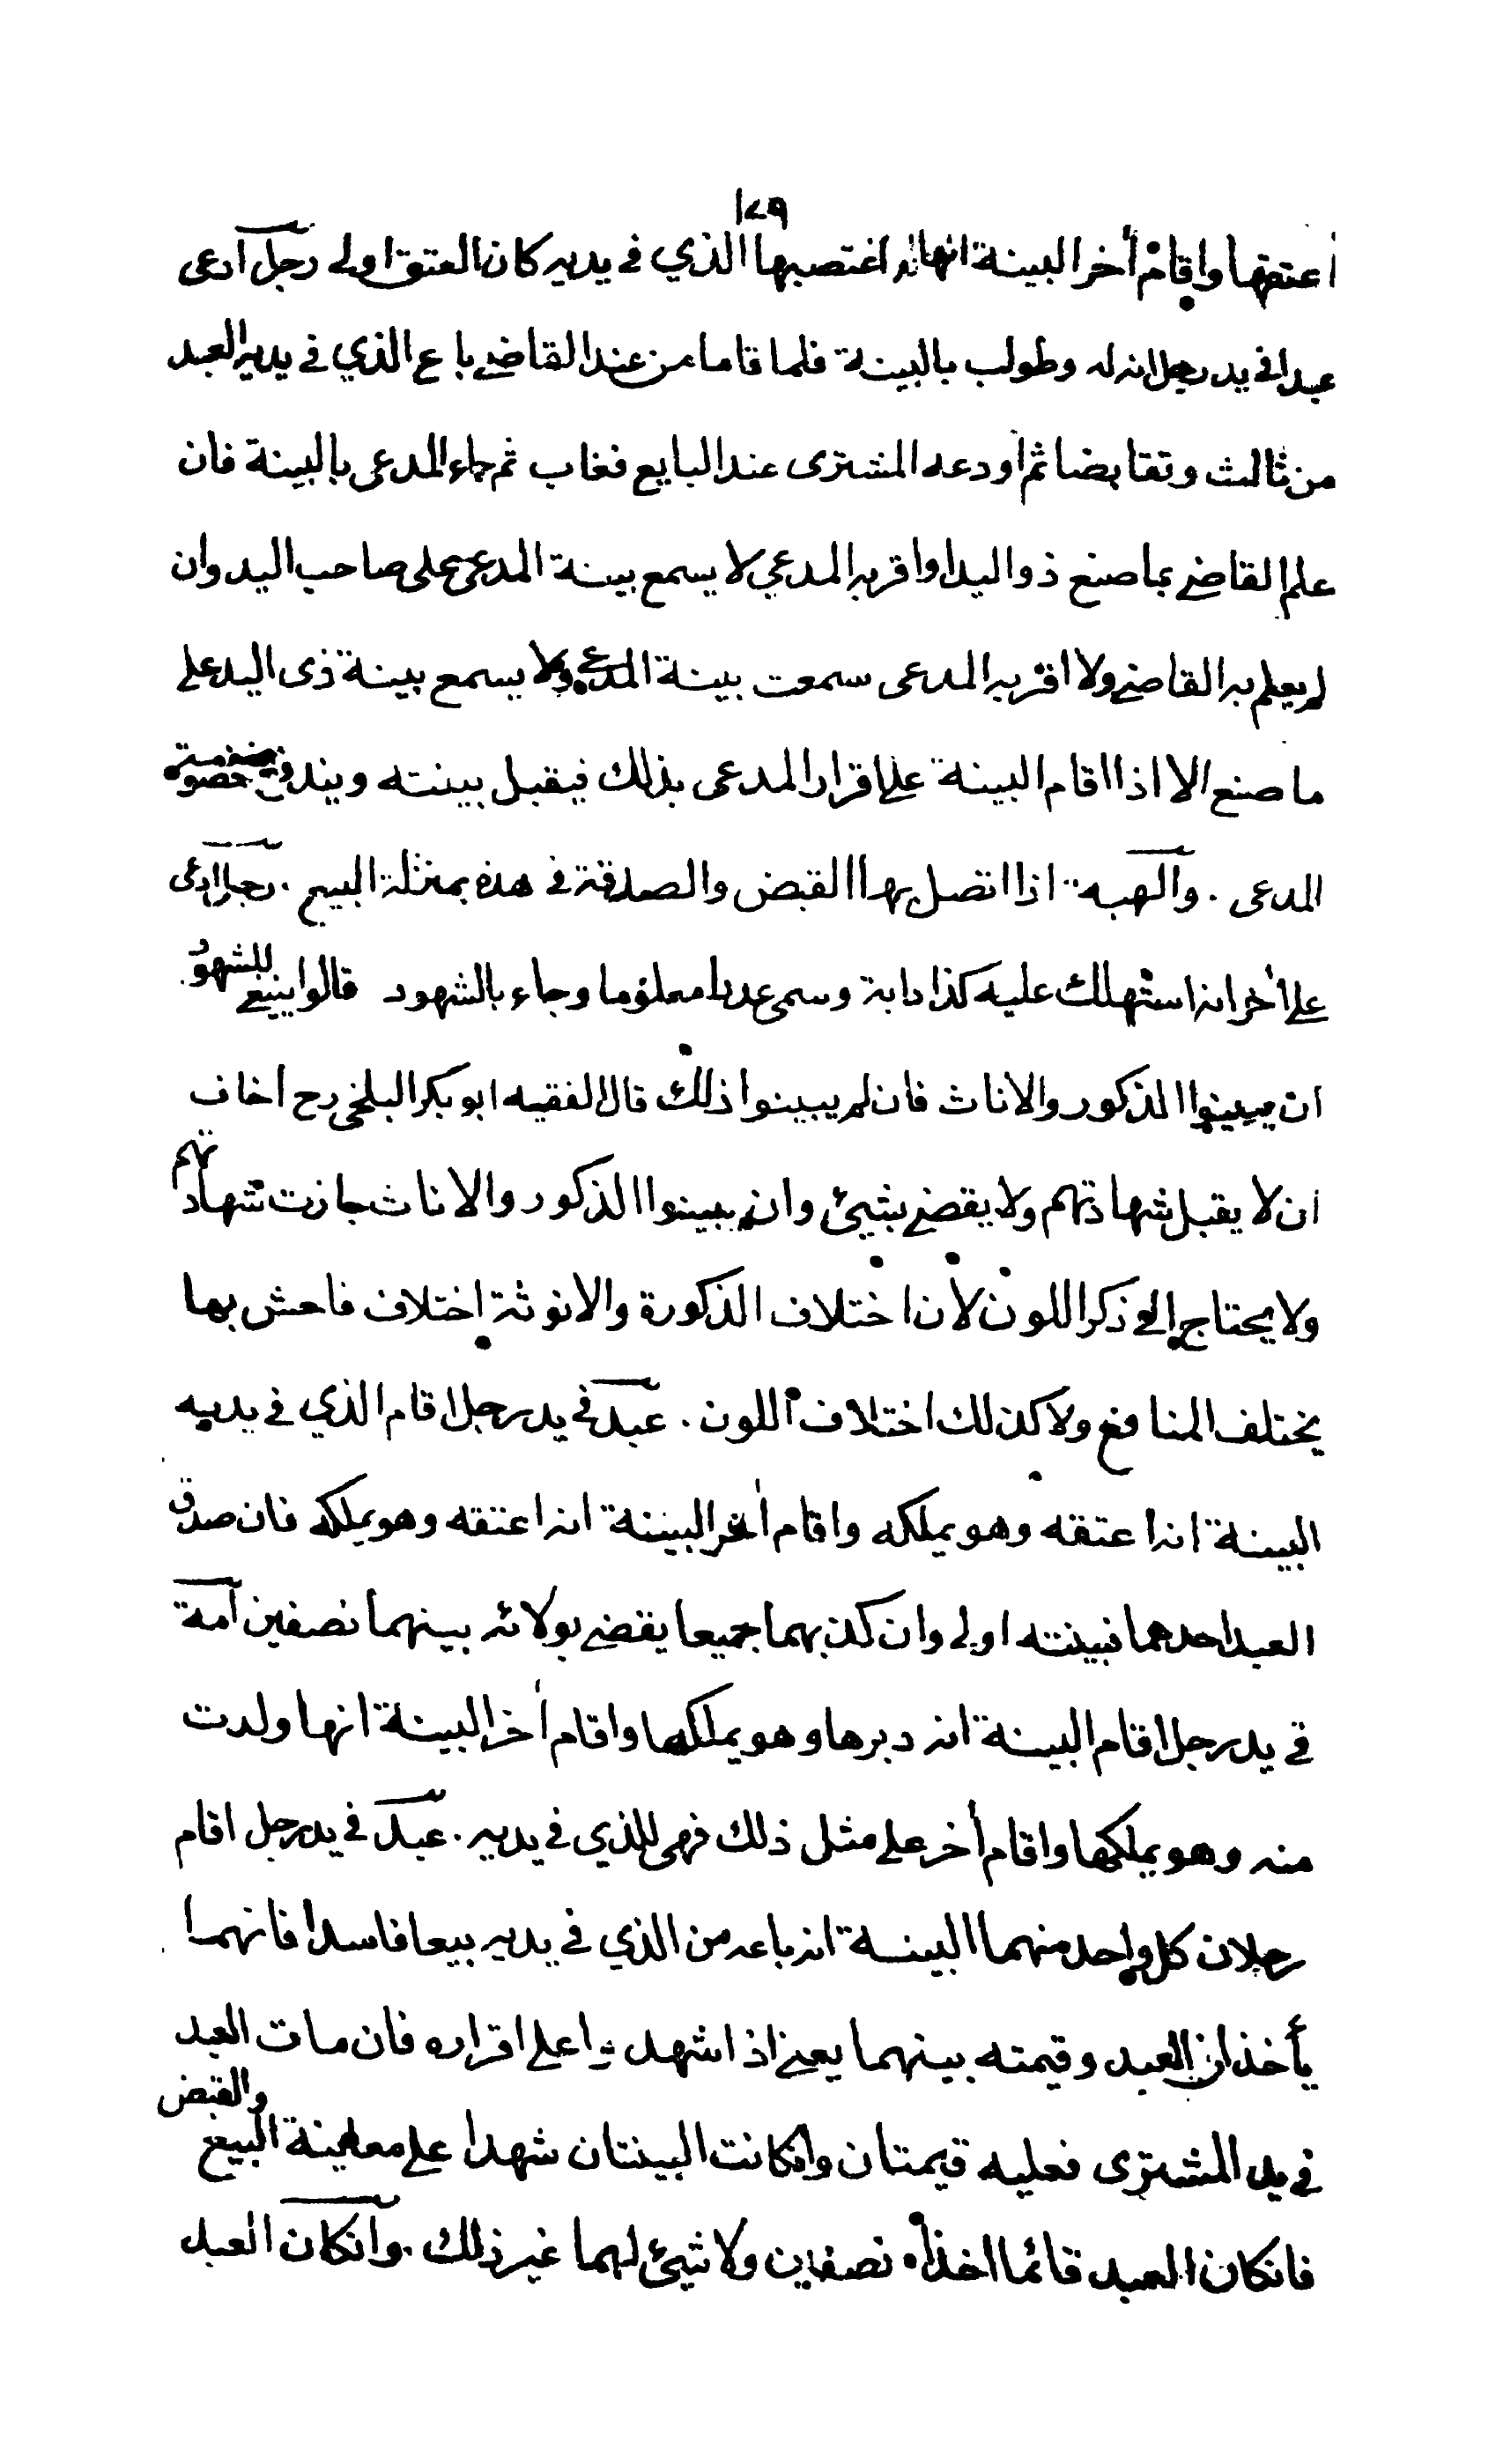 ١٧٩
اعتقها واقام أخر البينة انها له اغتصبها الذي في يديه كان العتق اولى رجل ادعى
عبدا في يد رجل انه له وطولب بالبينة فلما قاما من عند القاضي باع الذي في يديه العبد
من ثالث وتقابضا ثم اودعه المشترى عند البايع فغاب ثم جاء المدعى بالبينة فان
علم القاضي بما صنع ذو اليد او اقر به المدعي لا يسمع بينة المدعى على صاحب اليد وان
لم يعلم به القاضي ولا اقر به المدعى سمعت بينة المدعي ولا يسمع بينة ذى اليد على
ما صنع الا اذا اقام البينة على اقرار المدعى بذلك فيقبل بينته ويندفع خصومة
المدعى . والهبة اذا اتصل بها القبض والصدقة في هذه بمنزلة البيع . رجل ادعى
على أخر انه استهلك عليه كذا دابة وسمى عددا معلوما وجاء بالشهود قالوا ينبغي للشهود
ان يبينوا الذكور والاناث فان لم يبينوا ذلك قال الفقيه ابو بكر البلخي رح اخاف
ان لا يقبل شهادتهم ولا يقضي بشيئ وان يبينوا الذكور والاناث جازت شهادتهم
ولا يحتاج إلى ذكر اللون لأن اختلاف الذكورة والانوثة اختلاف فاحش بها
يختلف المنافع ولا كذلك اختلاف اللون . عبد في يد رجل اقام الذي في يديه
البينة انه اعتقه وهو يملكه واقام أخر البينة انه اعتقه وهو يملكه فان صدق
العبد احدهما فبينته اولى وان كذبهما جميعا يقضي بولائه بينهما نصفين امة
في يد رجل اقام البينة انه دبرها وهو يملكها واقام أخر البينة انها ولدت
منه وهو يملكها واقام أخر على مثل ذلك فهى للذي في يديه . عبد في يد رجل اقام
رجلان كل واحد منهما البينة انه باعه من الذي في يديه بيعا فاسدا فانهما
يأخذان العبد وقيمته بينهما يعني اذا شهدوا على اقراره فان مات العبد
في يد المشترى فعليه قيمتان وانكانت البينتان شهدا على معاينة البيع والقبض
فانكان العبد قائما اخذاه نصفين ولا شيئ لهما غير ذلك . وانكان العبد